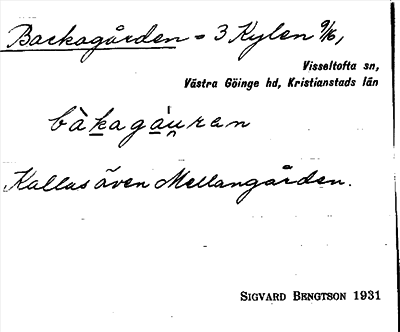 Backagården = 3 Kylen 9/16,
Visseltofta sn,
Västra Göinge hd, Kristianstads län
bàkagáu̯ran
Kallas även Mellangården.
SIGVARD BENGTSON 1931